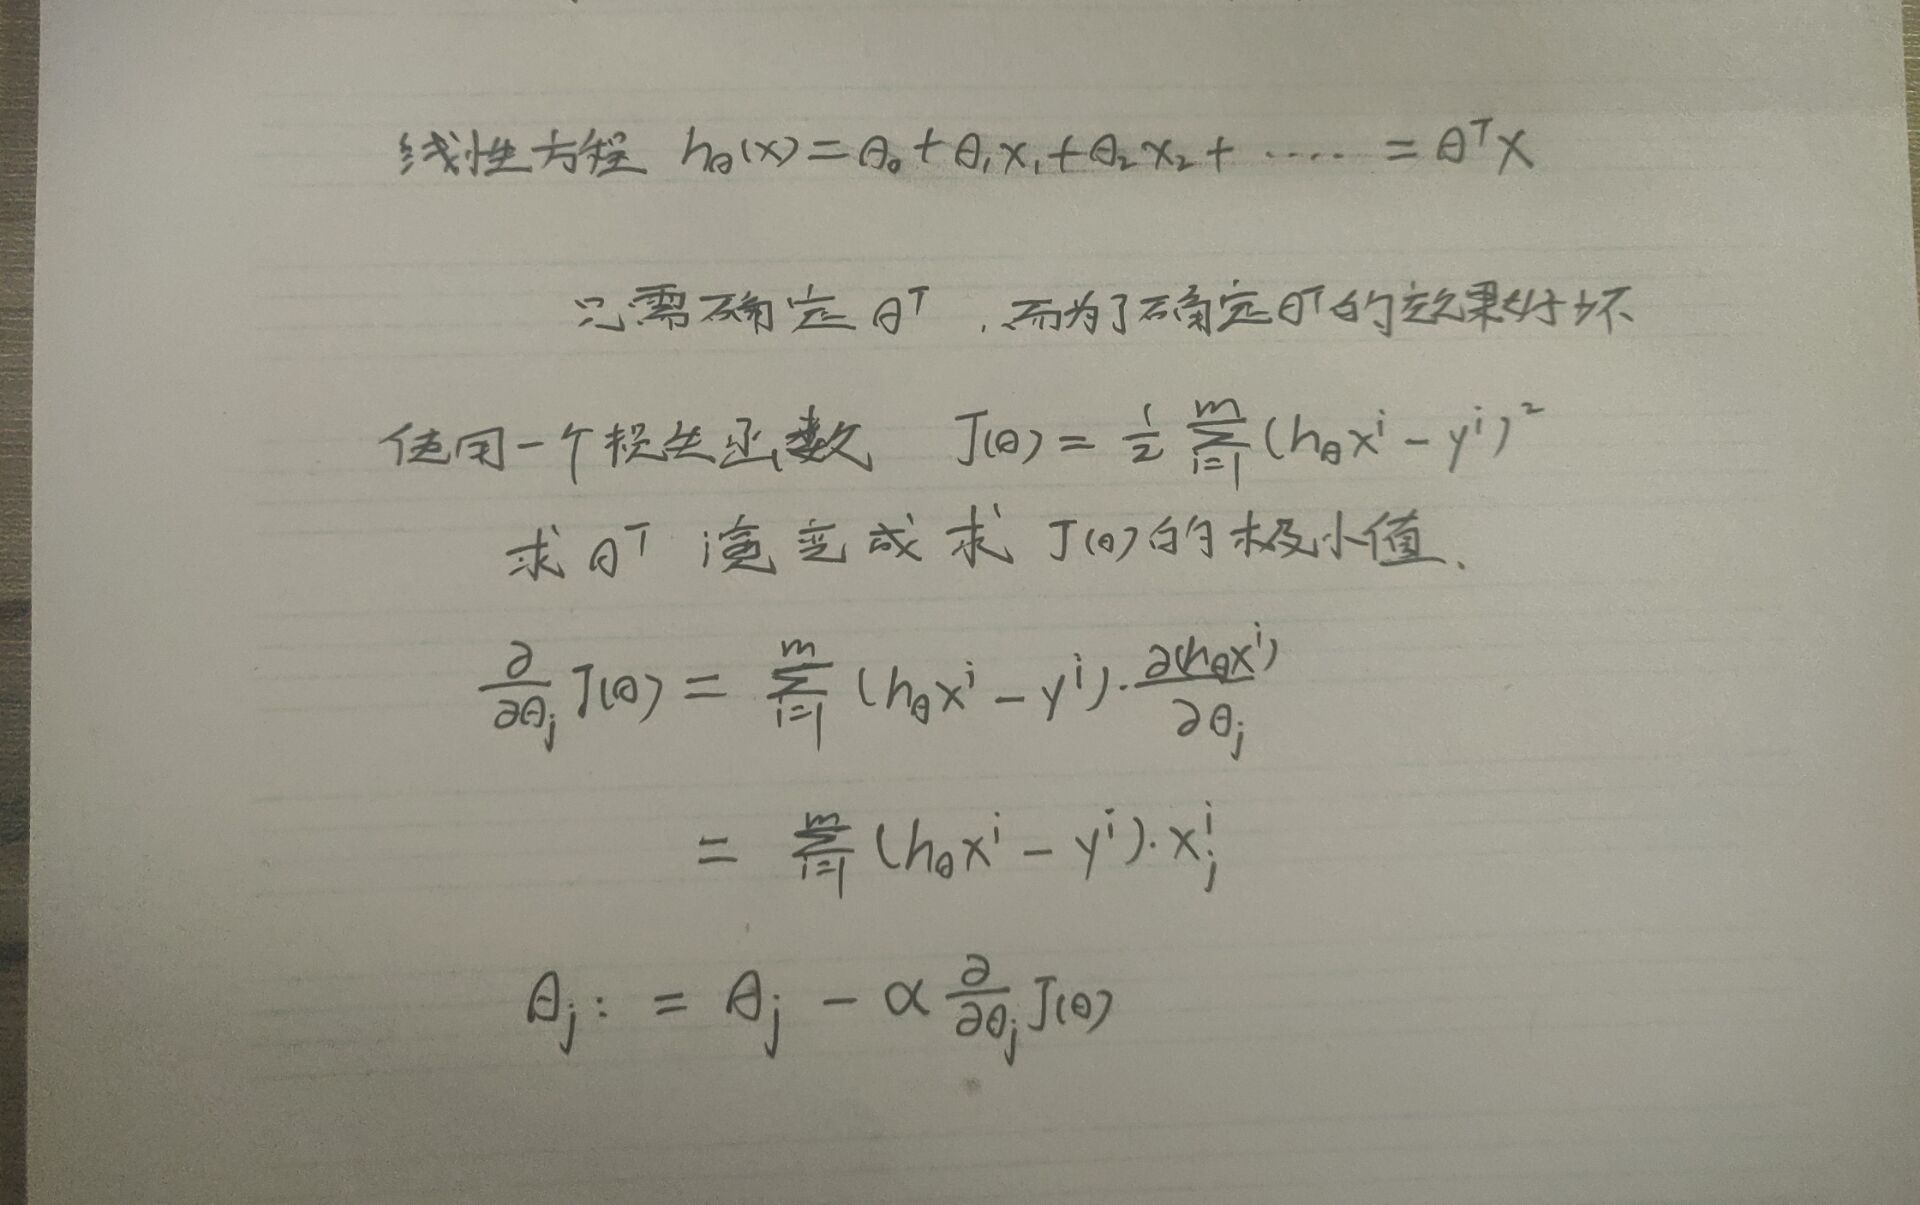 线性方程 hθ(x) = θ₀ + θ₁x₁ + θ₂x₂ + ····· = θᵀX
只需确定θᵀ,而为了确定θᵀ的效果好坏
使用一个损失函数 J(θ) = 1/2 ∑_{i=1}^{m} (hθxⁱ - yⁱ)²
求θᵀ演变成求J(θ)的极小值.
∂/∂θⱼ J(θ) = ∑_{i=1}^{m} (hθxⁱ - yⁱ)·∂(hθxⁱ)/∂θⱼ
= ∑_{i=1}^{m} (hθxⁱ - yⁱ)·xⱼⁱ
θⱼ := θⱼ - α ∂/∂θⱼ J(θ)